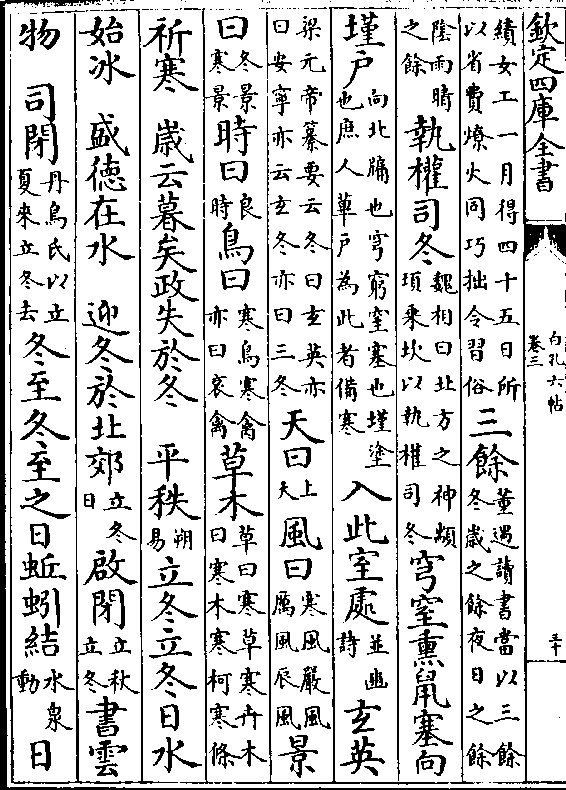 欽定四庫全書
白孔六帖
卷三
三十
績女工一月得四十五日所
以省費燎火同巧拙令習俗
三餘
董遇讀書當以三餘
冬歲之餘夜日之餘
陰雨晴
之餘
執權司冬
魏相曰北方之神顓
項乘坎以執權司冬
穹窒熏鼠塞向
墐户
向北牖也穹窮窒塞也墐塗
也庶人蓽户為此者備寒
入此室處
並豳
詩
玄英
梁元帝纂要云冬曰玄英亦
曰安寧亦云玄冬亦曰三冬
天曰
上
天
風曰
寒風嚴風
厲風辰風
景
曰
冬景
寒景
時曰
良
時
鳥曰
寒鳥寒禽
亦曰哀禽
草木
草曰寒草寒卉木
曰寒木寒柯寒條
祈寒 歲云暮矣政失於冬 平秩
朔
易
立冬立冬日水
始冰 盛德在水 迎冬於北郊
立冬
日
啟閉
立秋
立冬
書雲
物 司閉
丹鳥氏以立
夏來立冬去
冬至冬至之日蚯蚓結
水泉
動
日